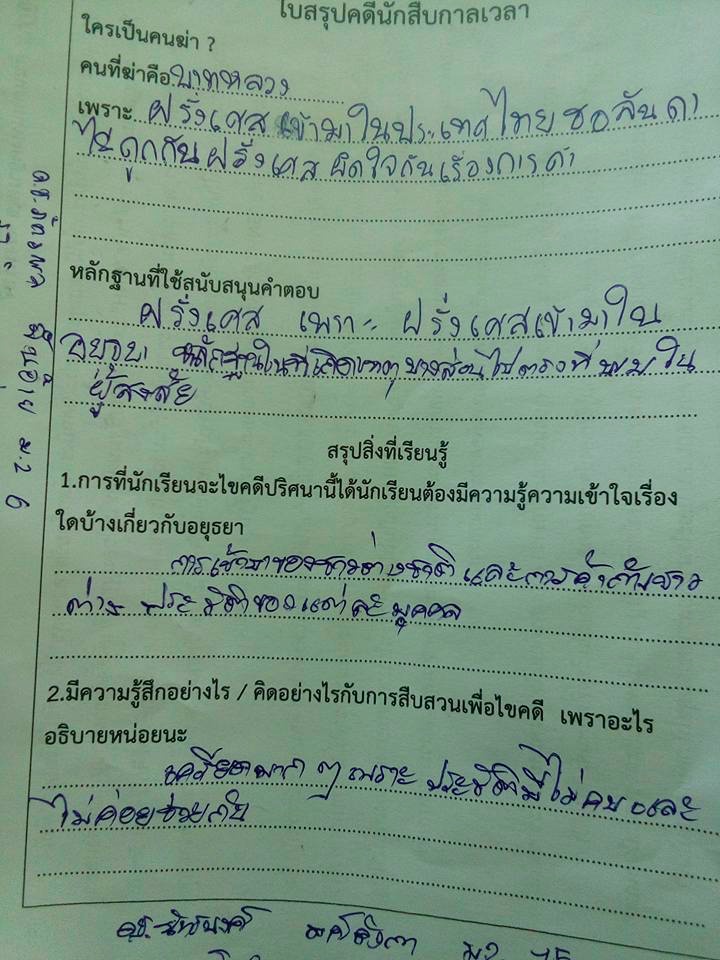 ใบสรุปคดีนักสืบกาลเวลา
ใครเป็นคนฆ่า ?
คนที่ฆ่าคือ บาทหลวง
เพราะ ฝรั่งเศสเข้ามาในประเทศไทย ฮอลันดา
ไม่ถูกกับฝรั่งเศส ผิดใจกันเรื่องการค้า
หลักฐานที่ใช้สนับสนุนคำตอบ
ฝรั่งเศส เพราะ ฝรั่งเศสเข้ามาใน
หลักฐานในที่เกิดเหตุบางส่วนไปตรงที่พบใน
ผู้สงสัย
สรุปสิ่งที่เรียนรู้
1.การที่นักเรียนจะไขคดีปริศนานี้ได้นักเรียนต้องมีความรู้ความเข้าใจเรื่อง
ใดบ้างเกี่ยวกับอยุธยา
การเข้ามาของชาวต่างชาติ และการค้ากับชาว
ต่าง ประวัติของแต่ละบุคคล
2.มีความรู้สึกอย่างไร / คิดอย่างไรกับการสืบสวนเพื่อไขคดี เพราอะไร
อธิบายหน่อยนะ
เครียดมาก ๆ เพราะ ประวัติมีไม่ครบ และ
ไม่ค่อยช่วยกัน
ม.2 6